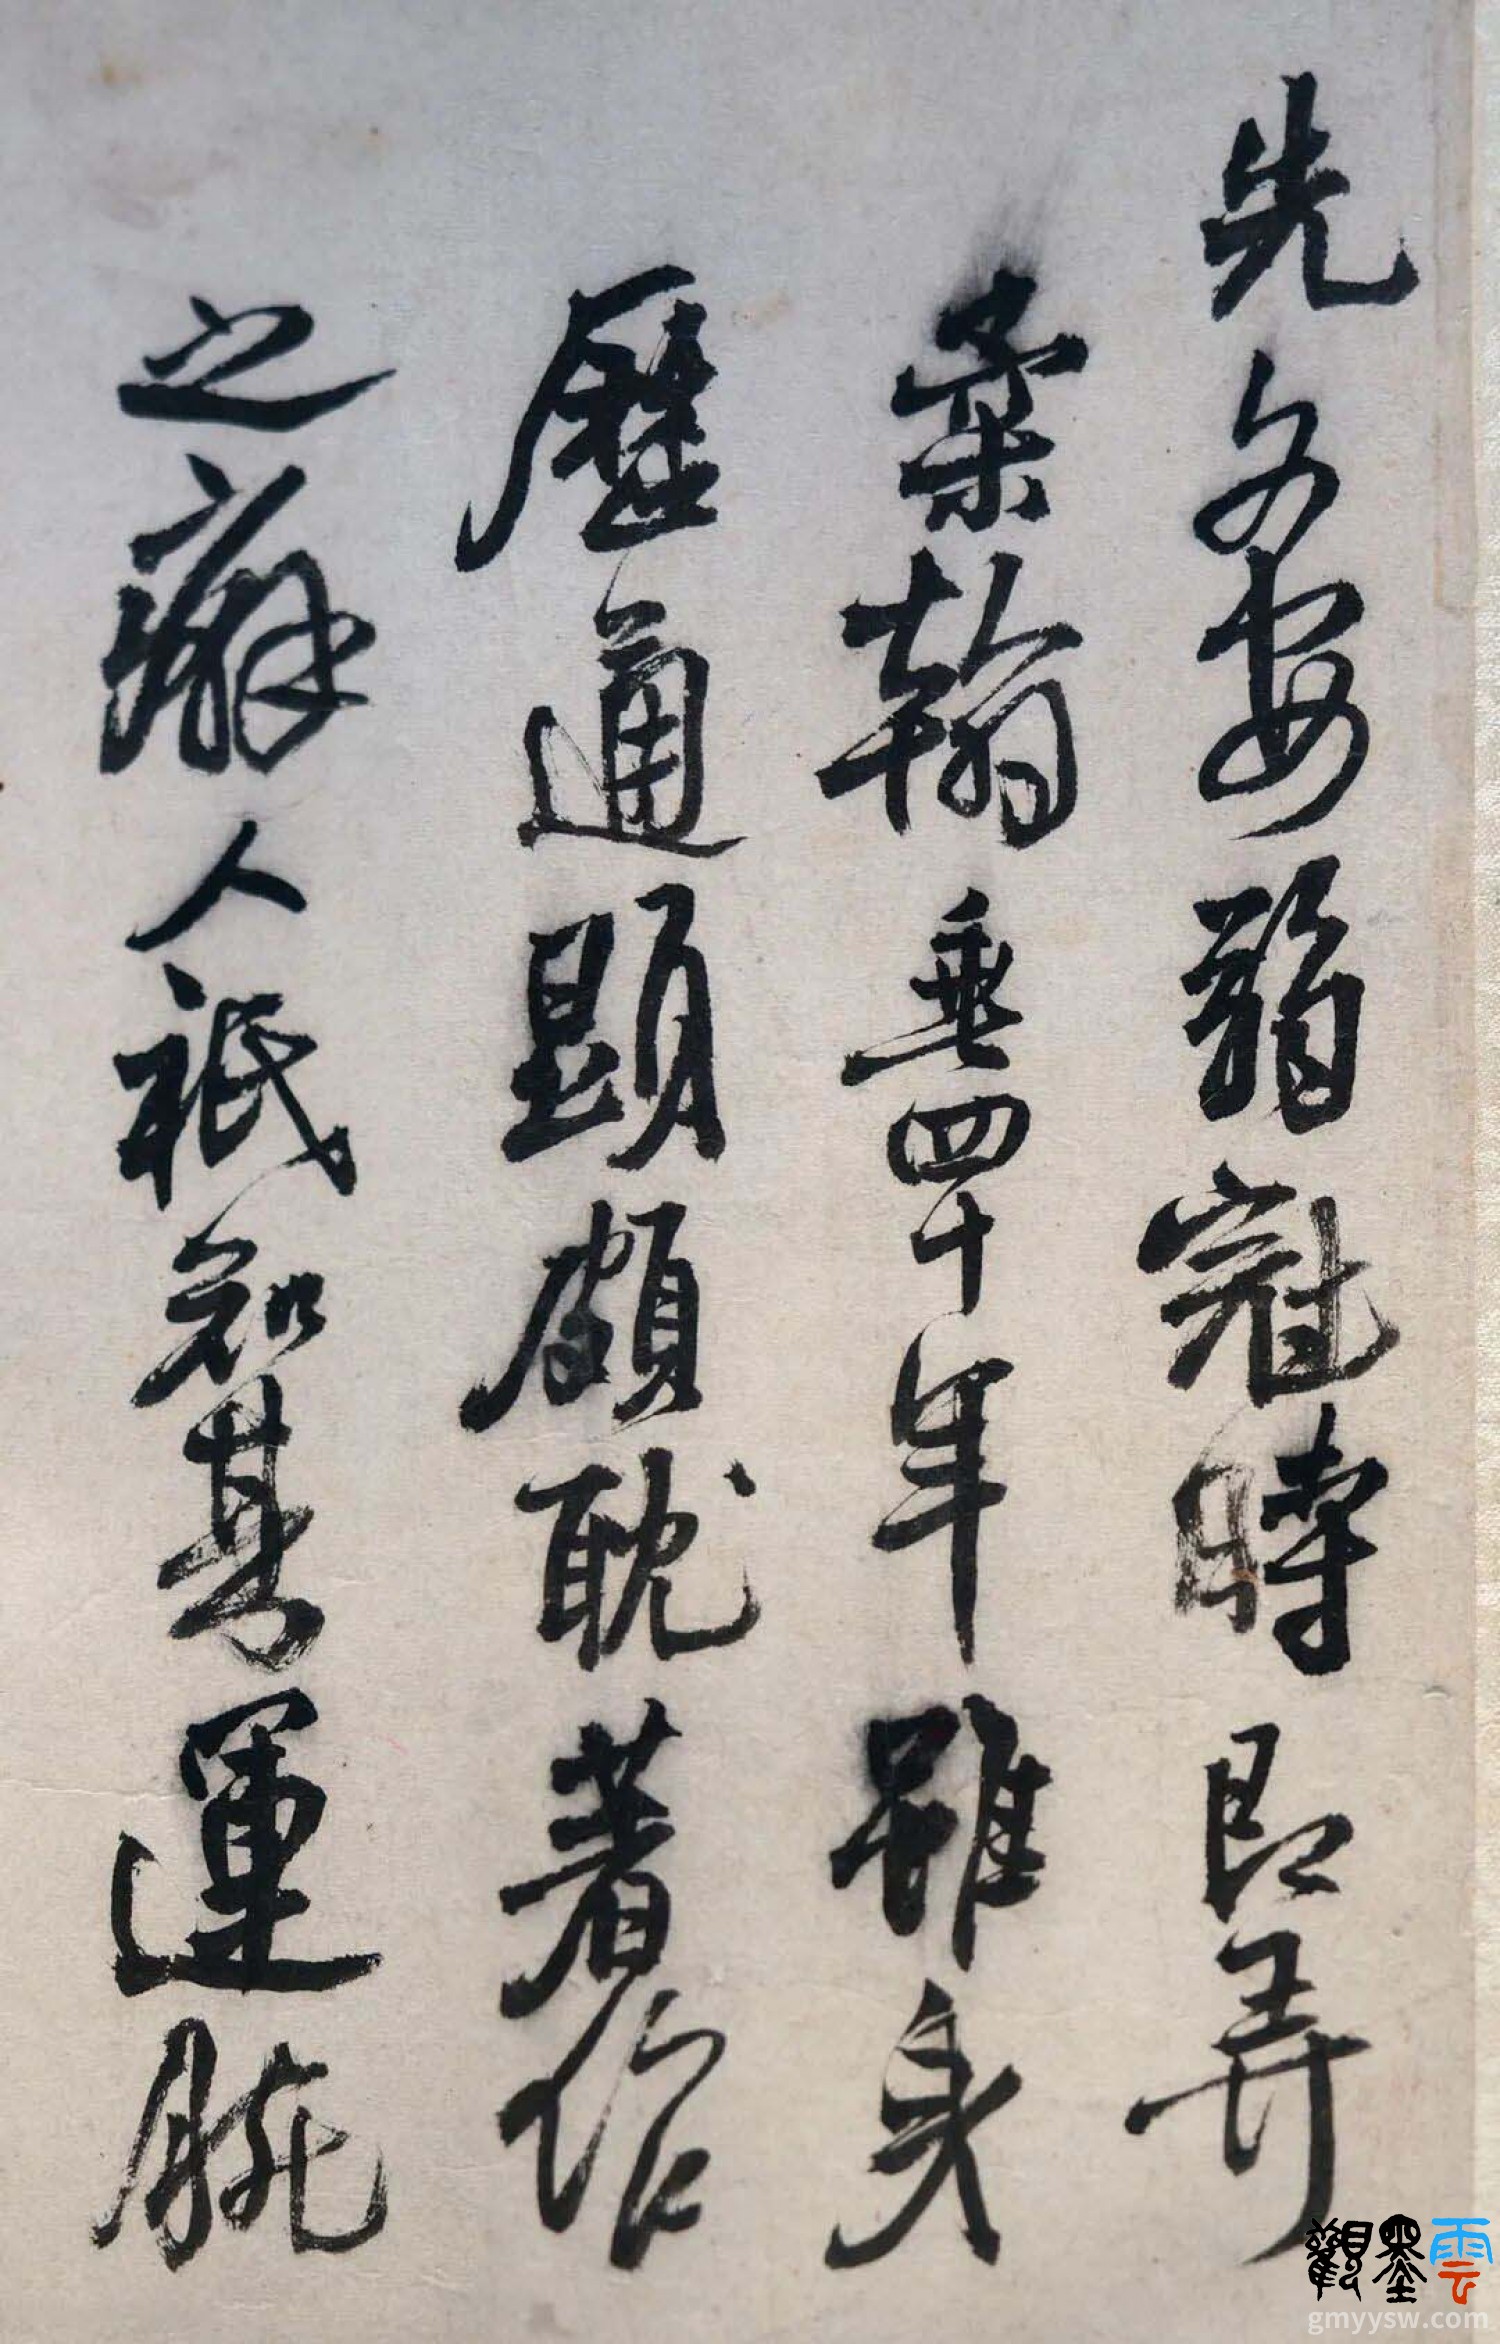 先文安弱冠時即弄
柔翰垂四十年雖身
歷通顯頗耽著作
之癖人祇知其運腕
觀墨雲
gmyysw.com